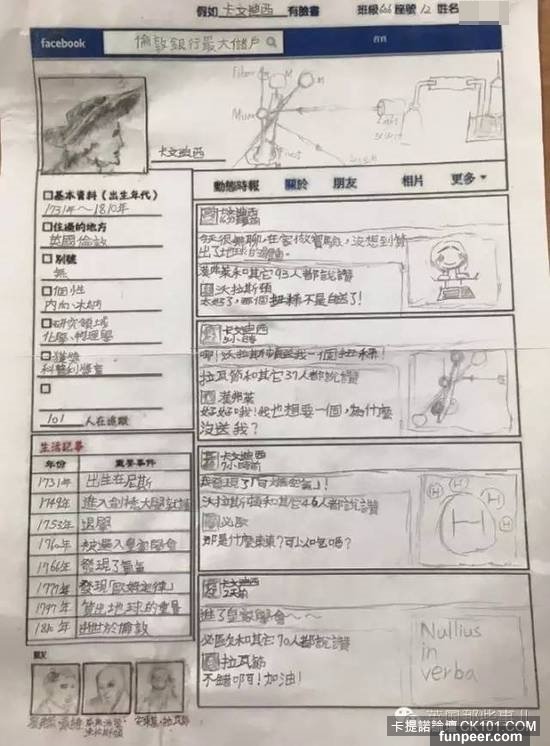 假如 卡文迪西 有臉書 班級606座號12 姓名
facebook 倫敦銀行最大儲戶
卡文迪西
動態時報 關於 朋友 相片 更多
基本資料(出生年代)
1731年~1810年
住過的地方
英國倫敦
別號
無
個性
內向
研究領域
化學、物理學
獲獎
科普利獎章
101 人在追蹤
生活記事
年份 重要事件
1731年 出生在尼斯
1749年 進入劍橋大學
1753年 退學
1760年 被選入皇家學會
1766年 發現了氫氣
1777年 發現「歐姆定律」
1797年 算出地球的重量
1810年 出世於倫敦
卡文迪西
今天很無聊,在家做實驗,沒想到算
出了地球的
和其它93人都說讚
沃拉斯頓
太好了,那個扭秤不是白送了!
卡文迪西
沃拉斯頓送我一個扭秤!
拉瓦節和其它37人都說讚
好好哦!我也想要一個,為什麼
沒送我?
卡文迪西
7小時前
我發現了「可燃空氣」!
沃拉斯頓和其它46人都說讚
那是什麼東東?可以吃嗎?
卡文迪西
2天前
進了皇家學會~~
和其它70人都說讚
拉瓦節
不錯呵!加油!
H
H
H
H
Nullius
in
verba
卡提諾論壇 CK101.COM
funpeer.com